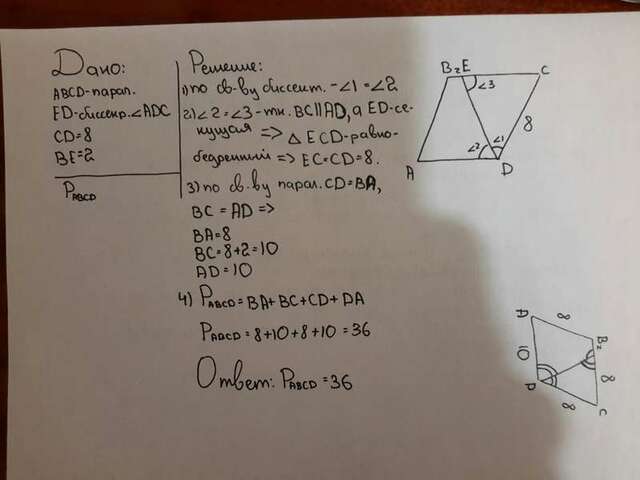 Дано:
ABCD-парал.
ED-биссектр.∠ADC
CD=8
BE=2
P ABCD
Решение:
1) по св-ву биссект. - ∠1 = ∠2
2) ∠2 = ∠3 - тк. BC||AD, а ED-се-
кущая => △ ECD-равно-
бедренный => EC=CD=8.
3) по св. ву парал. CD=BA,
BC = AD =>
BA=8
BC=8+2=10
AD=10
4) P ABCD = BA+BC+CD+DA
P ABCD = 8+10+8+10 = 36
Ответ: P ABCD = 36
B 2 E C
∠3
8
∠2 ∠1
A D
A 8 B 2
10 8
D 8 C